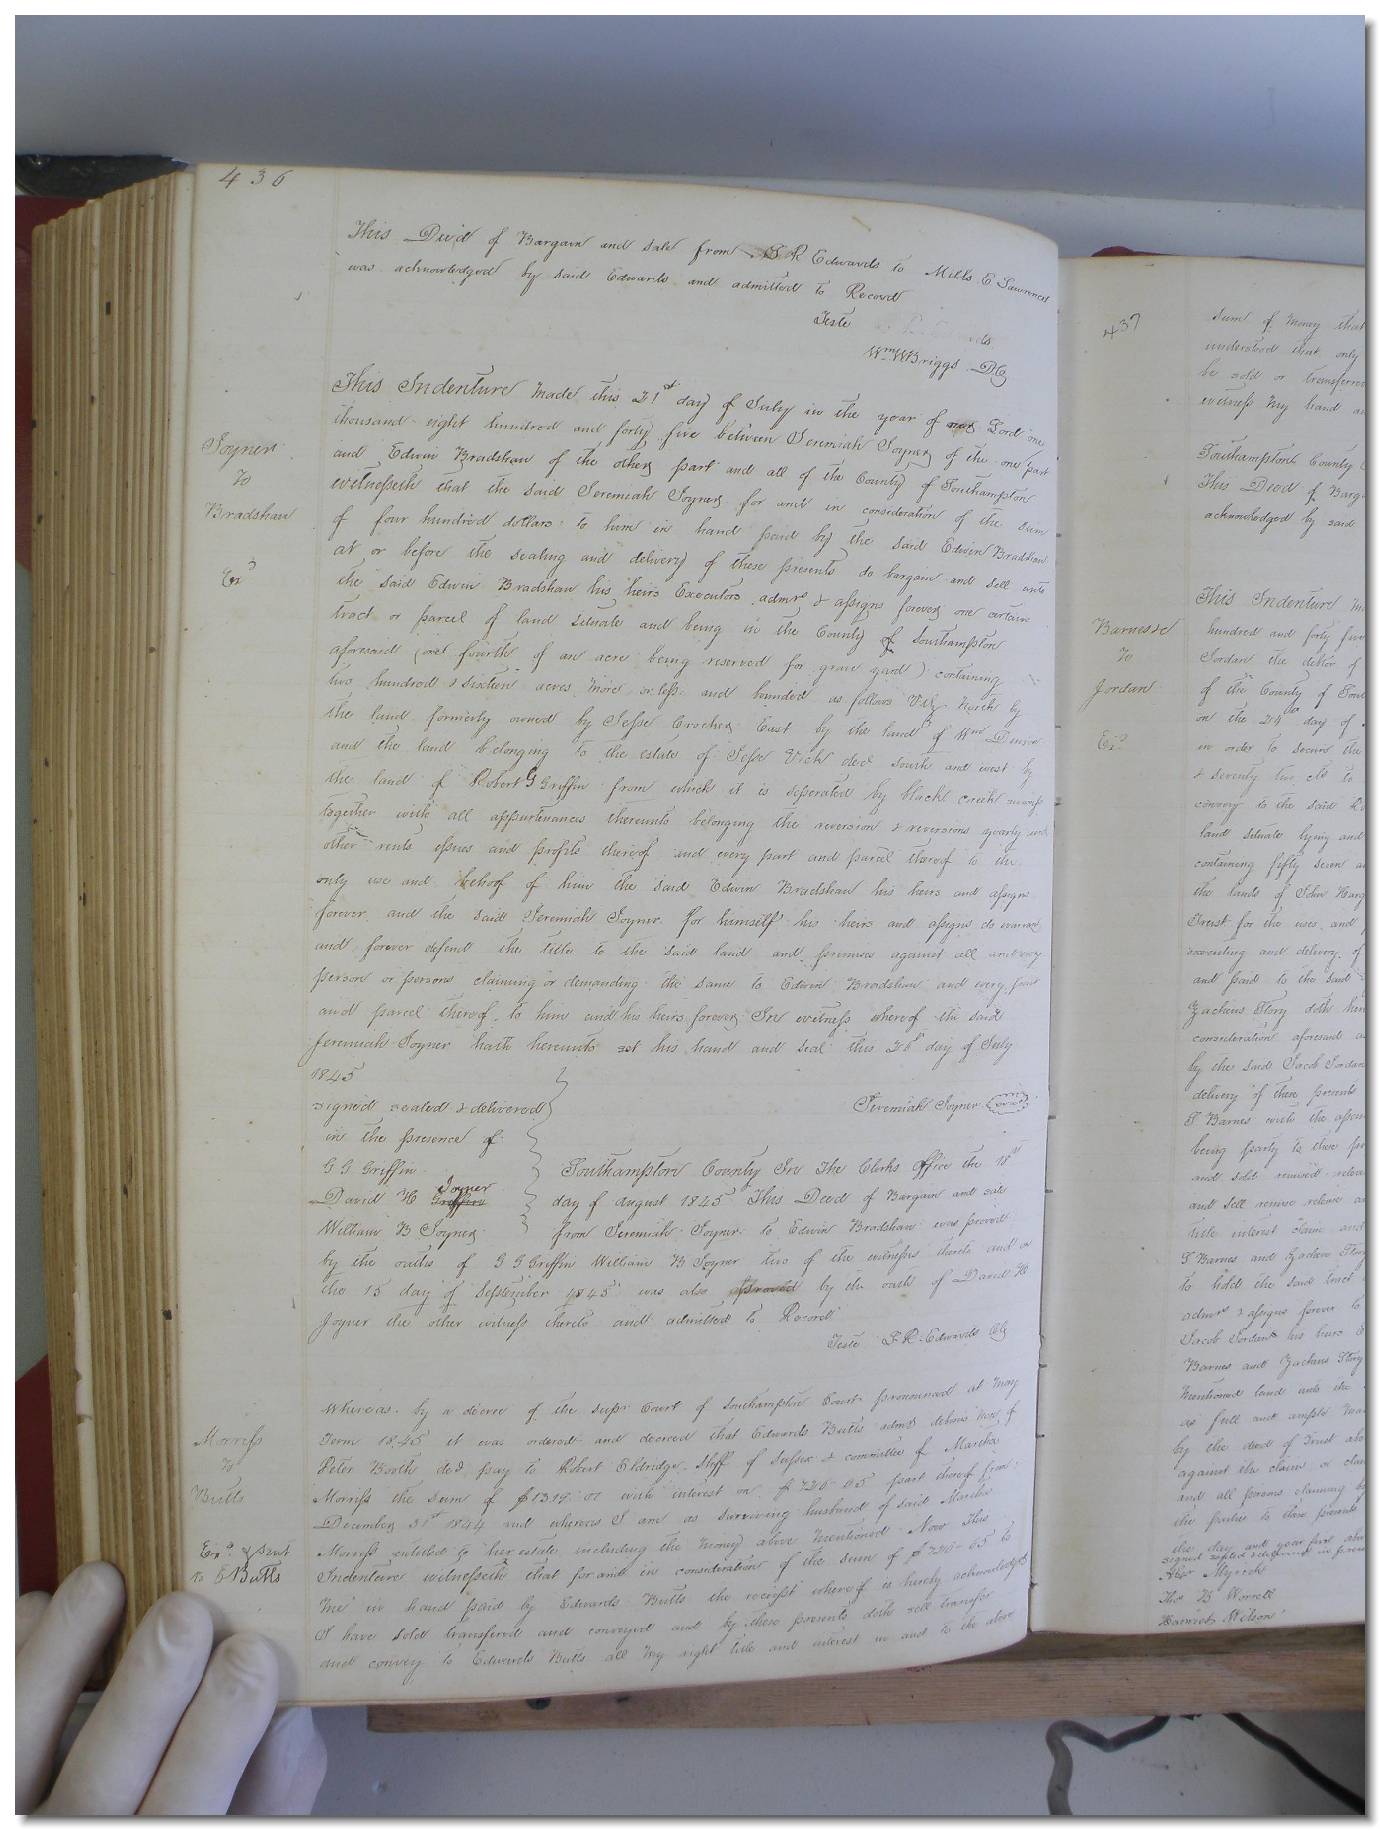 436
This Deed of Bargain and sale from S R Edwards to Mills E Lawrence
was acknowledged by said Edwards and admitted to Record
Teste
Wm W Briggs DC
Joyner
To
Bradshaw
Exd
This Indenture Made this 21st day of July in the year of our Lord one
thousand eight hundred and forty five between Jeremiah Joyner of the one part
and Edwin Bradshaw of the other part and all of the County of Southampton
witnesseth that the said Jeremiah Joyner for and in consideration of the sum
of four hundred dollars to him in hand paid by the said Edwin Bradshaw
at or before the sealing and delivery of these presents do bargain and sell unto
the said Edwin Bradshaw his heirs Executors admrs & assigns forever one certain
tract or parcel of land situate and being in the County of Southampton
aforesaid (one fourth of an acre being reserved for grave yard) containing
two hundred & sixteen acres more or less and bounded as follows Viz North by
the land formerly owned by Jesse Crocker East by the land of Wm
and the land belonging to the estate of Jesse Vick decd south and west by
the land of Robert G Griffin from which it is seperated by black creek
together with all appurtenances thereunto belonging the reversion & reversions yearly and
other rents issues and profits thereof and every part and parcel thereof to the
only use and behoof of him the said Edwin Bradshaw his heirs and assigns
forever and the said Jeremiah Joyner for himself his heirs and assigns do warrant
and forever defend the title to the said land and premises against all and every
person or persons claiming or demanding the same to Edwin Bradshaw and every part
and parcel thereof to him and his heirs forever In witness whereof the said
Jeremiah Joyner hath hereunto set his hand and seal this 26th day of July
1845
signed sealed & delivered
in the presence of
Jeremiah Joyner seal
G G Griffin
David H Joyner
William B Joyner
Southampton County In The Clerks office the 18th
day of August 1845 This Deed of Bargain and sale
from Jeremiah Joyner to Edwin Bradshaw was proved
by the oaths of G G Griffin William B Joyner two of the witnesses thereto and on
the 15 day of September 1845 was also proved by the oath of David H
Joyner the other witness thereto and admitted to Record
Teste L R Edwards Clk
Morriss
To
Butts
Exd & sent
to E Butts
Whereas by a decree of the supr Court of Southampton County pronounced at May
Term 1845 it was ordered and decreed that Edwards Butts admr debonis non of
Peter Booth decd pay to Robert Eldridge Shff of Sussex & committee of Martha
Morriss the sum of $1319 with interest on $726 65 part thereof from
December 31st 1844 and whereas I am as surviving husband of said Martha
Morriss entitled to her estate including the money above mentioned Now This
Indenture witnesseth that for and in consideration of the sum of $726 65 to
me in hand paid by Edwards Butts the receipt whereof is hereby acknowledged
I have sold transfered and conveyed and by these presents doth sell transfer
and convey to Edwards Butts all my right title and interest in and to the above
437
sum of money that
understood that only
be sold or transferred
witness my hand
Southampton County
This Deed of Barg
acknowledged by said
Barnes &c
To
Jordan
Exd
This Indenture
hundred and forty five
Jordan the debtor of
of the County of
on the 24th day of
in order to secure the
& seventy two cts to
convey to the said
land situate lying and
containing fifty seven
the lands of John
Trust for the uses and
executing and delivery of
and paid to the said
Zacheus Story doth
consideration aforesaid
by the said Jacob Jordan
delivery of these presents
Barnes with the
being party to these
and sold remised
and sell remise release
title interest claim and
Barnes and Zacheus Story
to hold the said tract
admrs & assigns forever to
Jacob Jordan his heirs
Barnes and Zacheus Story
mentioned land unto the
as full and ample
by the deed of Trust
against the claim or
and all persons claiming by
the parties to these presents
the day and year first above
signed sealed
Myrick
Thos B Worrell
Harriet Wilson